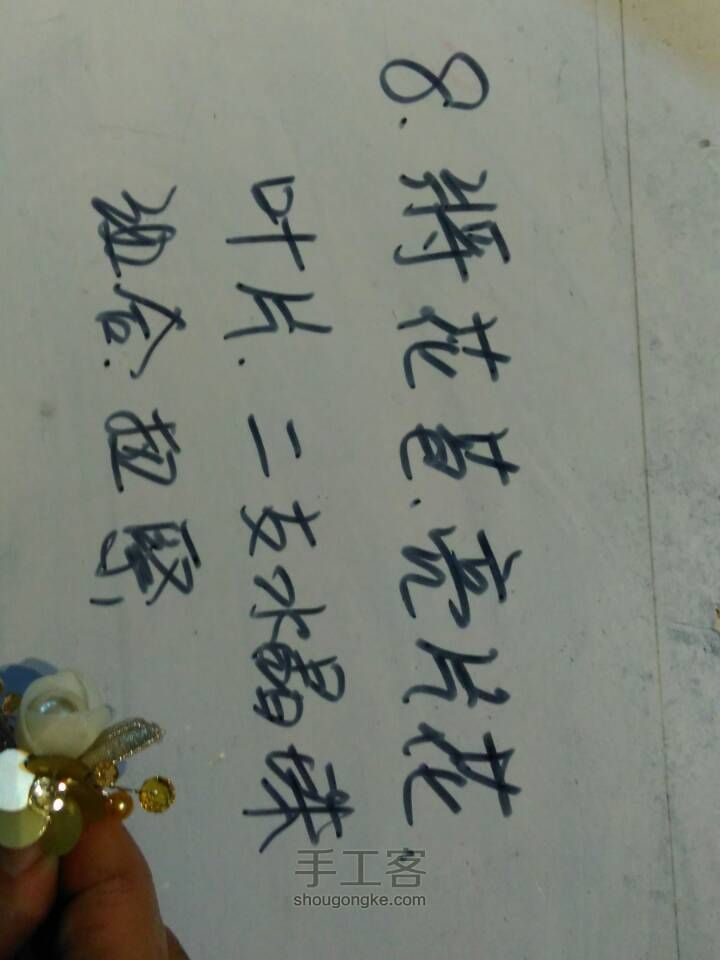 8.将花苞.亮片花.
叶片.二支水晶珠
组合.扭紧,
手工客
shougongke.com